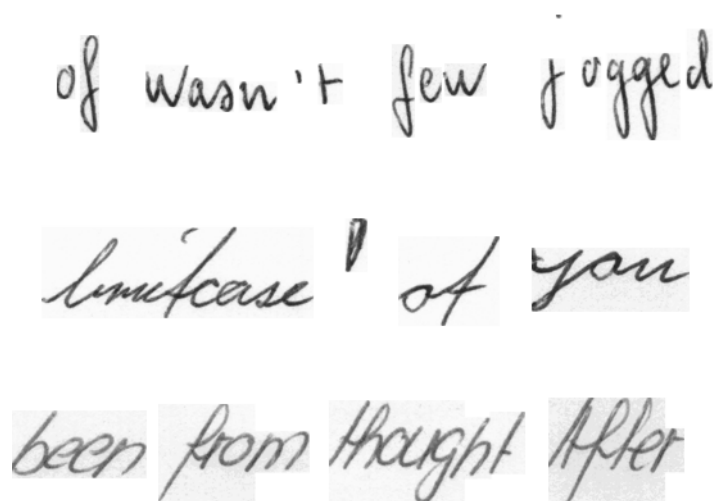 of wasn't few jogged
briefcase ' of you
been from thought After